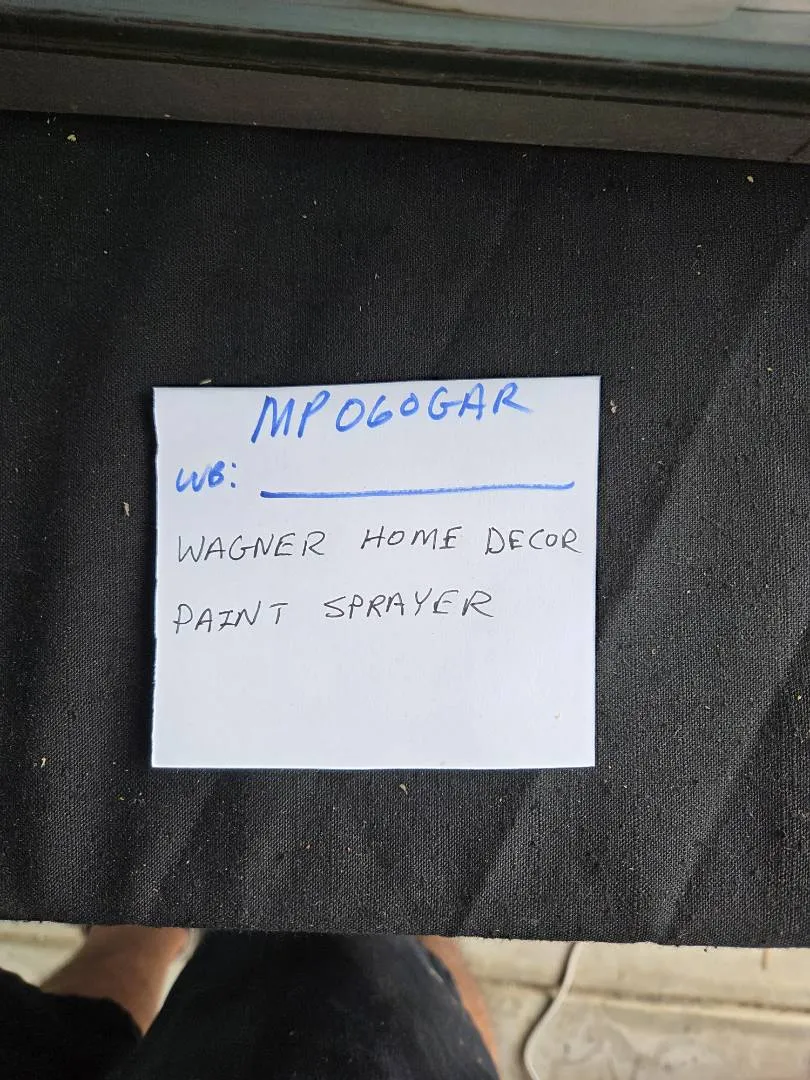 MP060GAR
WB:
WAGNER HOME DECOR
PAINT SPRAYER